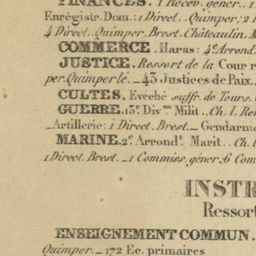 FINANCES. 1 Recev. génér.. 1
Enrégistr. Dom.: 1 Direct.. Quimper. 2
4 Direct. Quimper. Brest. Châteaulin. M
COMMERCE. Haras: 4e. Arrond.
JUSTICE. Ressort de la Cour r
per. Quimperlé._ 43 Justices de Paix.
CULTES. Evêché suffr. de Tours.
GUERRE. 13e. Div.on Milit.. Ch. l. Re
_Artillerie: 1 Direct. Brest._ Gendarm
MARINE. 2e. Arrondt. Marit.. Ch.
1 Direct. Brest._ 1 Commiss. génér. 6 Com
INSTR
Ressor
ENSEIGNEMENT COMMUN.
Quimper._ 172 Ec. primaires